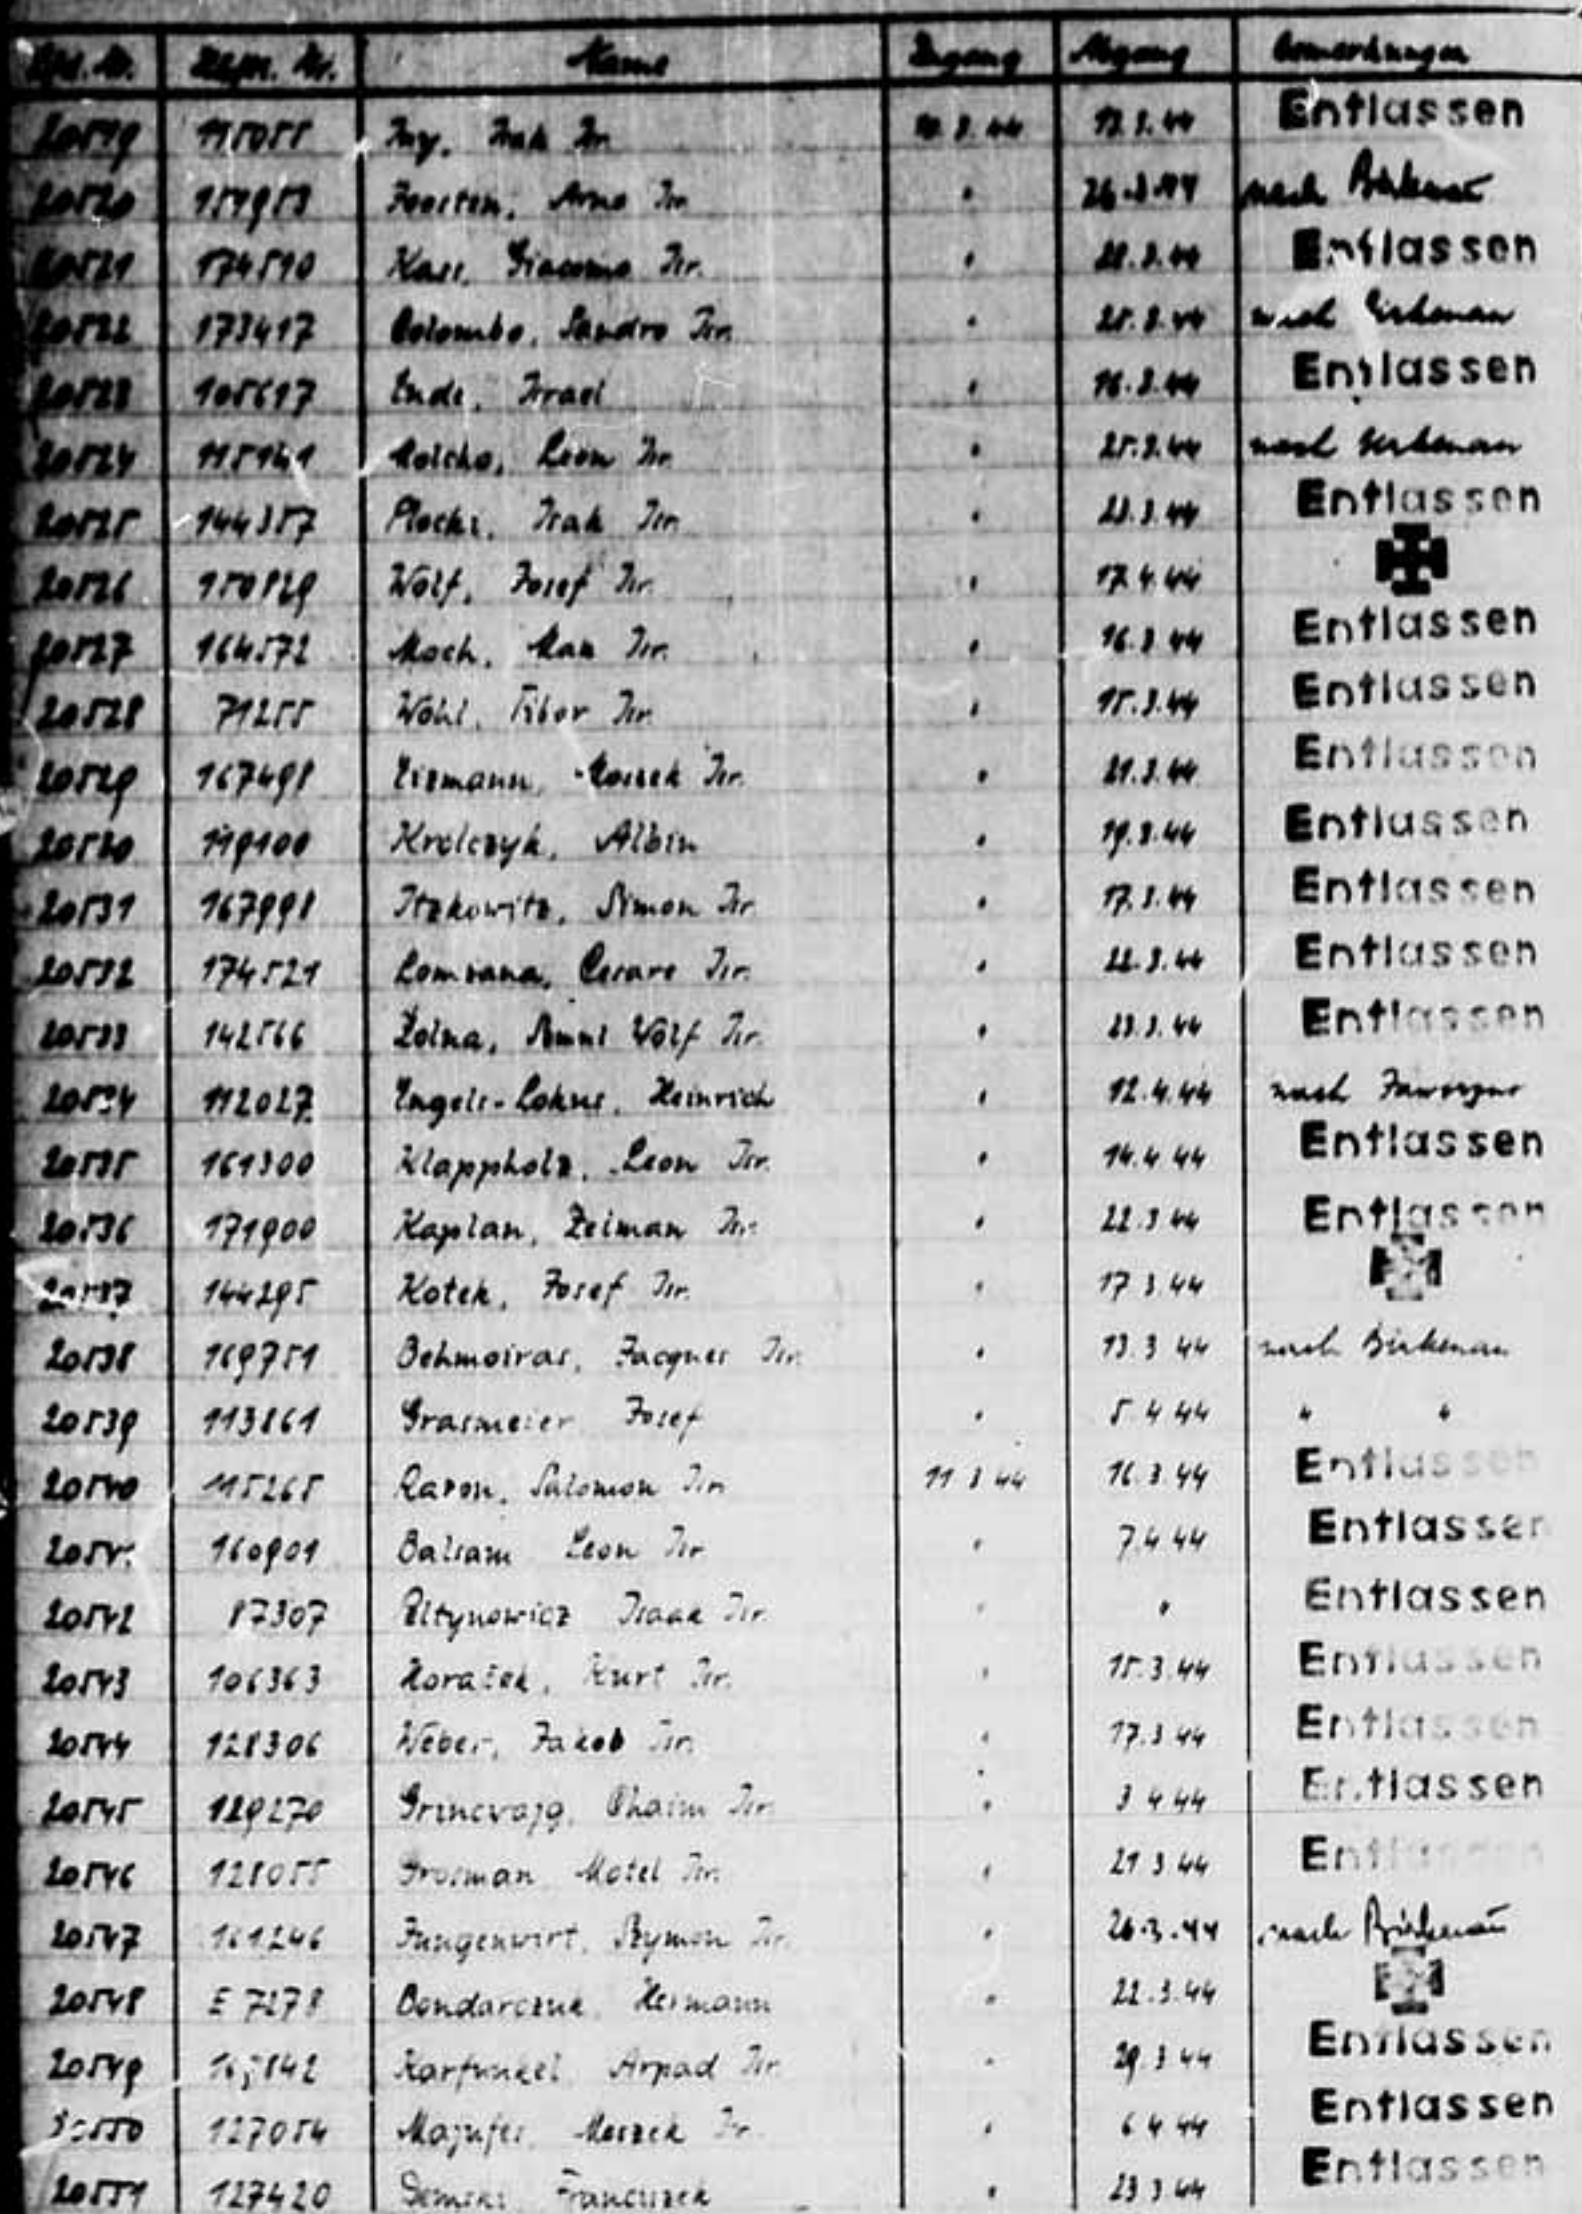 Lfd. Nr. Häftl. Nr. Name Zugang Abgang Bemerkungen
20519 115055 Isak Isr. 10.3.44 13.3.44 Entlassen
20520 Arno Isr. " 26.3.44 nach Birkenau
20521 174510 Giacomo Isr. " 22.3.44 Entlassen
20522 173417 Colombo, Sandro Isr. " 25.3.44 nach Birkenau
20523 105617 Ende, Israel " 16.3.44 Entlassen
20524 115141 Molcho, Leon Isr. " 25.3.44 nach Birkenau
20525 144357 Plocki, Isak Isr. " 23.3.44 Entlassen
20526 150829 Wolf, Josef Isr. " 17.4.44
20527 164572 Moch, Max Isr. " 16.3.44 Entlassen
20528 71255 Wohl, Tibor Isr. " 15.3.44 Entlassen
20529 167498 Moszek Isr. " 21.3.44 Entlassen
20530 119100 Krolczyk, Albin " 19.3.44 Entlassen
20531 167998 Itzkowitz, Simon Isr. " 17.3.44 Entlassen
20532 174521 Cesare Isr. " 22.3.44 Entlassen
20533 142566 Wolf Isr. " 23.3.44 Entlassen
20534 112027 Heinrich " 12.4.44 nach Jaworzno
20535 161300 Klappholz, Leon Isr. " 14.4.44 Entlassen
20536 171900 Kaplan, Zelman Isr. " 22.3.44 Entlassen
20537 144295 Kotek, Josef Isr. " 17.3.44
20538 169751 Behmoiras, Jacques Isr. " 13.3.44 nach Birkenau
20539 113861 Grasmeier Josef " 5.4.44 " "
20540 115265 Salomon Isr. 11.3.44 16.3.44 Entlassen
160901 Balsam Leon Isr. " 7.4.44 Entlassen
20542 87307 Isaak Isr. " " Entlassen
20543 106363 Kurt Isr. " 15.3.44 Entlassen
20544 128306 Weber, Jakob Isr. " 17.3.44 Entlassen
20545 129270 Chaim Isr. " 3.4.44 Entlassen
20546 128055 Grosman Motel Isr. " 21.3.44 Entlassen
20547 161246 Jungenwirt, Szymon Isr. " 26.3.44 nach Birkenau
20548 E 7278 Bondarczuk Hermann " 22.3.44
20549 Karfunkel Arpad Isr. " 29.3.44 Entlassen
20550 127054 Majufes Moszek Isr. " 6.4.44 Entlassen
20551 127420 Demski Franciszek " 23.3.44 Entlassen